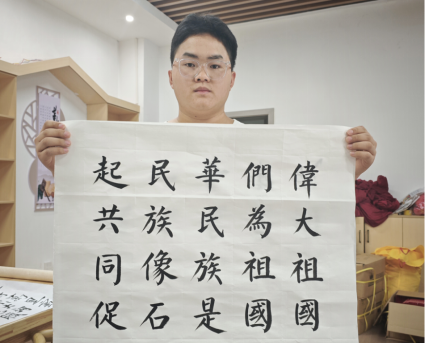 偉大祖國
們為祖國
華民族是
民族像石
起共同促